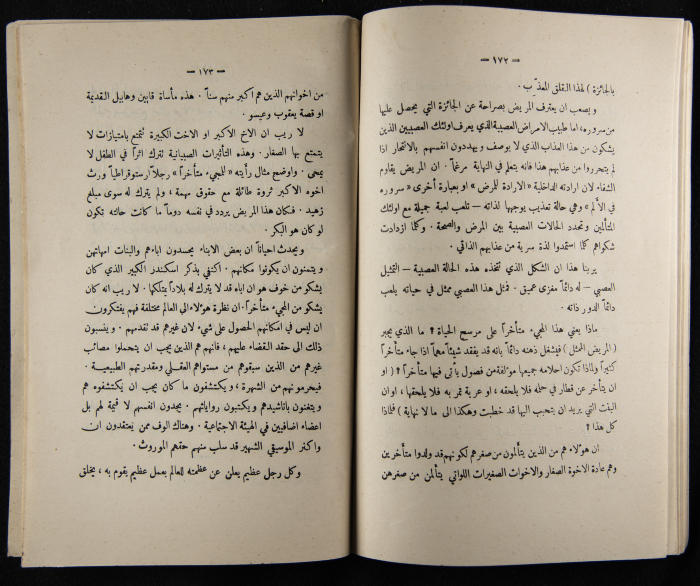 — ١٧٢ —
بالجائزة ) لهذا القلق المعذّب .
ويصعب ان يعترف المريض بصراحة عن الجائزة التي يحصل عليها
من سروره، اما طبيب الامراض العصبية الذي يعرف اولئك العصبيين الذين
يشكون من هذا العذاب الذي لا يوصف ويهددون انفسهم بالانتحار اذا
لم يتحرروا من عذابهم هذا فانه يتعلم في النهاية مرغماً . ان المريض يقاوم
الشفاء لان ارادته الداخلية « الارادة للمرض » او بعبارة أخرى « سروره
في الألم » وهي حالة تعذيب يوجهها لذاته – تلعب لعبة جميلة مع اولئك
المتألمين وتحدد الحالات العصبية بين المرض والصحة . وكما ازدادت
شكواهم كما استمدوا لذة سرية من عذابهم الذاتي .
يرينا هذا ان الشكل الذي تتخذه هذه الحالة العصبية – التمثيل
العصبي – له دائماً مغزى عميق . فمثل هذا العصبي ممثل في حياته يلعب
دائماً الدور ذاته .
ماذا يعني هذا المجيء متأخراً على مرسح الحياة ؟ ما الذي يجبر
( المريض الممثل ) فيشغل ذهنه دائماً بانه قد يفقد شيئاً مهماً اذا جاء متأخراً
كثيراً ولماذا تكون احلامه جميعها مؤلفة من فصول يأتي فيها متأخراً ؟ ( او
ان يتأخر عن قطار في حلمه فلا يلحقه ، او عربة تمر به فلا يلحقها ، او ان
البنت التي يريد ان يتحبب اليها قد خطبت وهكذا الى ما لا نهاية ) فلماذا
كل هذا ؟
ان هؤلاء هم من الذين يتألمون من صغرهم لكونهم قد ولدوا متأخرين
وهم عادة الاخوة الصغار والاخوات الصغيرات اللواتي يتألمن من صغرهن
— ١٧٣ —
من اخوانهم الذين هم أكبر منهم سناً . هذه مأساة قايين وهابيل القديمة
او قصة يعقوب وعيسو .
لا ريب ان الاخ الاكبر او الاخت الكبيرة تتمتع بامتيازات لا
يتمتع بها الصغار . وهذه التأثيرات الصبيانية تترك اثراً في الطفل لا
يمحى . واوضح مثال رأيته « للمجيء متأخراً » رجلاً ارستوقراطياً ورث
اخوه الاكبر ثروة طائلة مع حقوق مهمة ، ولم يترك له سوى مبلغ
زهيد . فكان هذا المريض يردد في نفسه دوماً ما كانت حالته تكون
لو كان هو البكر .
ويحدث احياناً ان بعض الابناء يحسدون اباءهم والبنات امهاتهن
ويتمنون ان يكونوا مكانهم . اكتفي بذكر اسكندر الكبير الذي كان
يشكو من خوف هو ان اباه قد لا يترك له بلاداً يتملكها . لا ريب انه كان
يشكو من المجيء متأخراً. ان نظرة هؤلاء الى العالم مختلفة فهم يفتكرون
ان ليس في امكانهم الحصول على شيء لان غيرهم قد تقدمهم . وينسبون
ذلك الى حقد القضاء عليهم ، فانهم هم الذين يجب ان يتحملوا مصائب
غيرهم من الذين سبقوهم من مستواهم العقلي ومقدرتهم الطبيعية .
فيحرمونهم من الشهرة، ويكتشفون ما كان يجب ان يكتشفوه هم
ويتغنون باناشيدهم ويكتبون رواياتهم . يجدون انفسهم لا قيمة لهم بل
اعضاء اضافيين في الهيئة الاجتماعية . وهناك الوف ممن يعتقدون ان
واكنر الموسيقي الشهير قد سلب منهم حقهم الموروث .
وكل رجل عظيم يعلن عن عظمته للعالم بعمل عظيم يقوم به ، يخلق